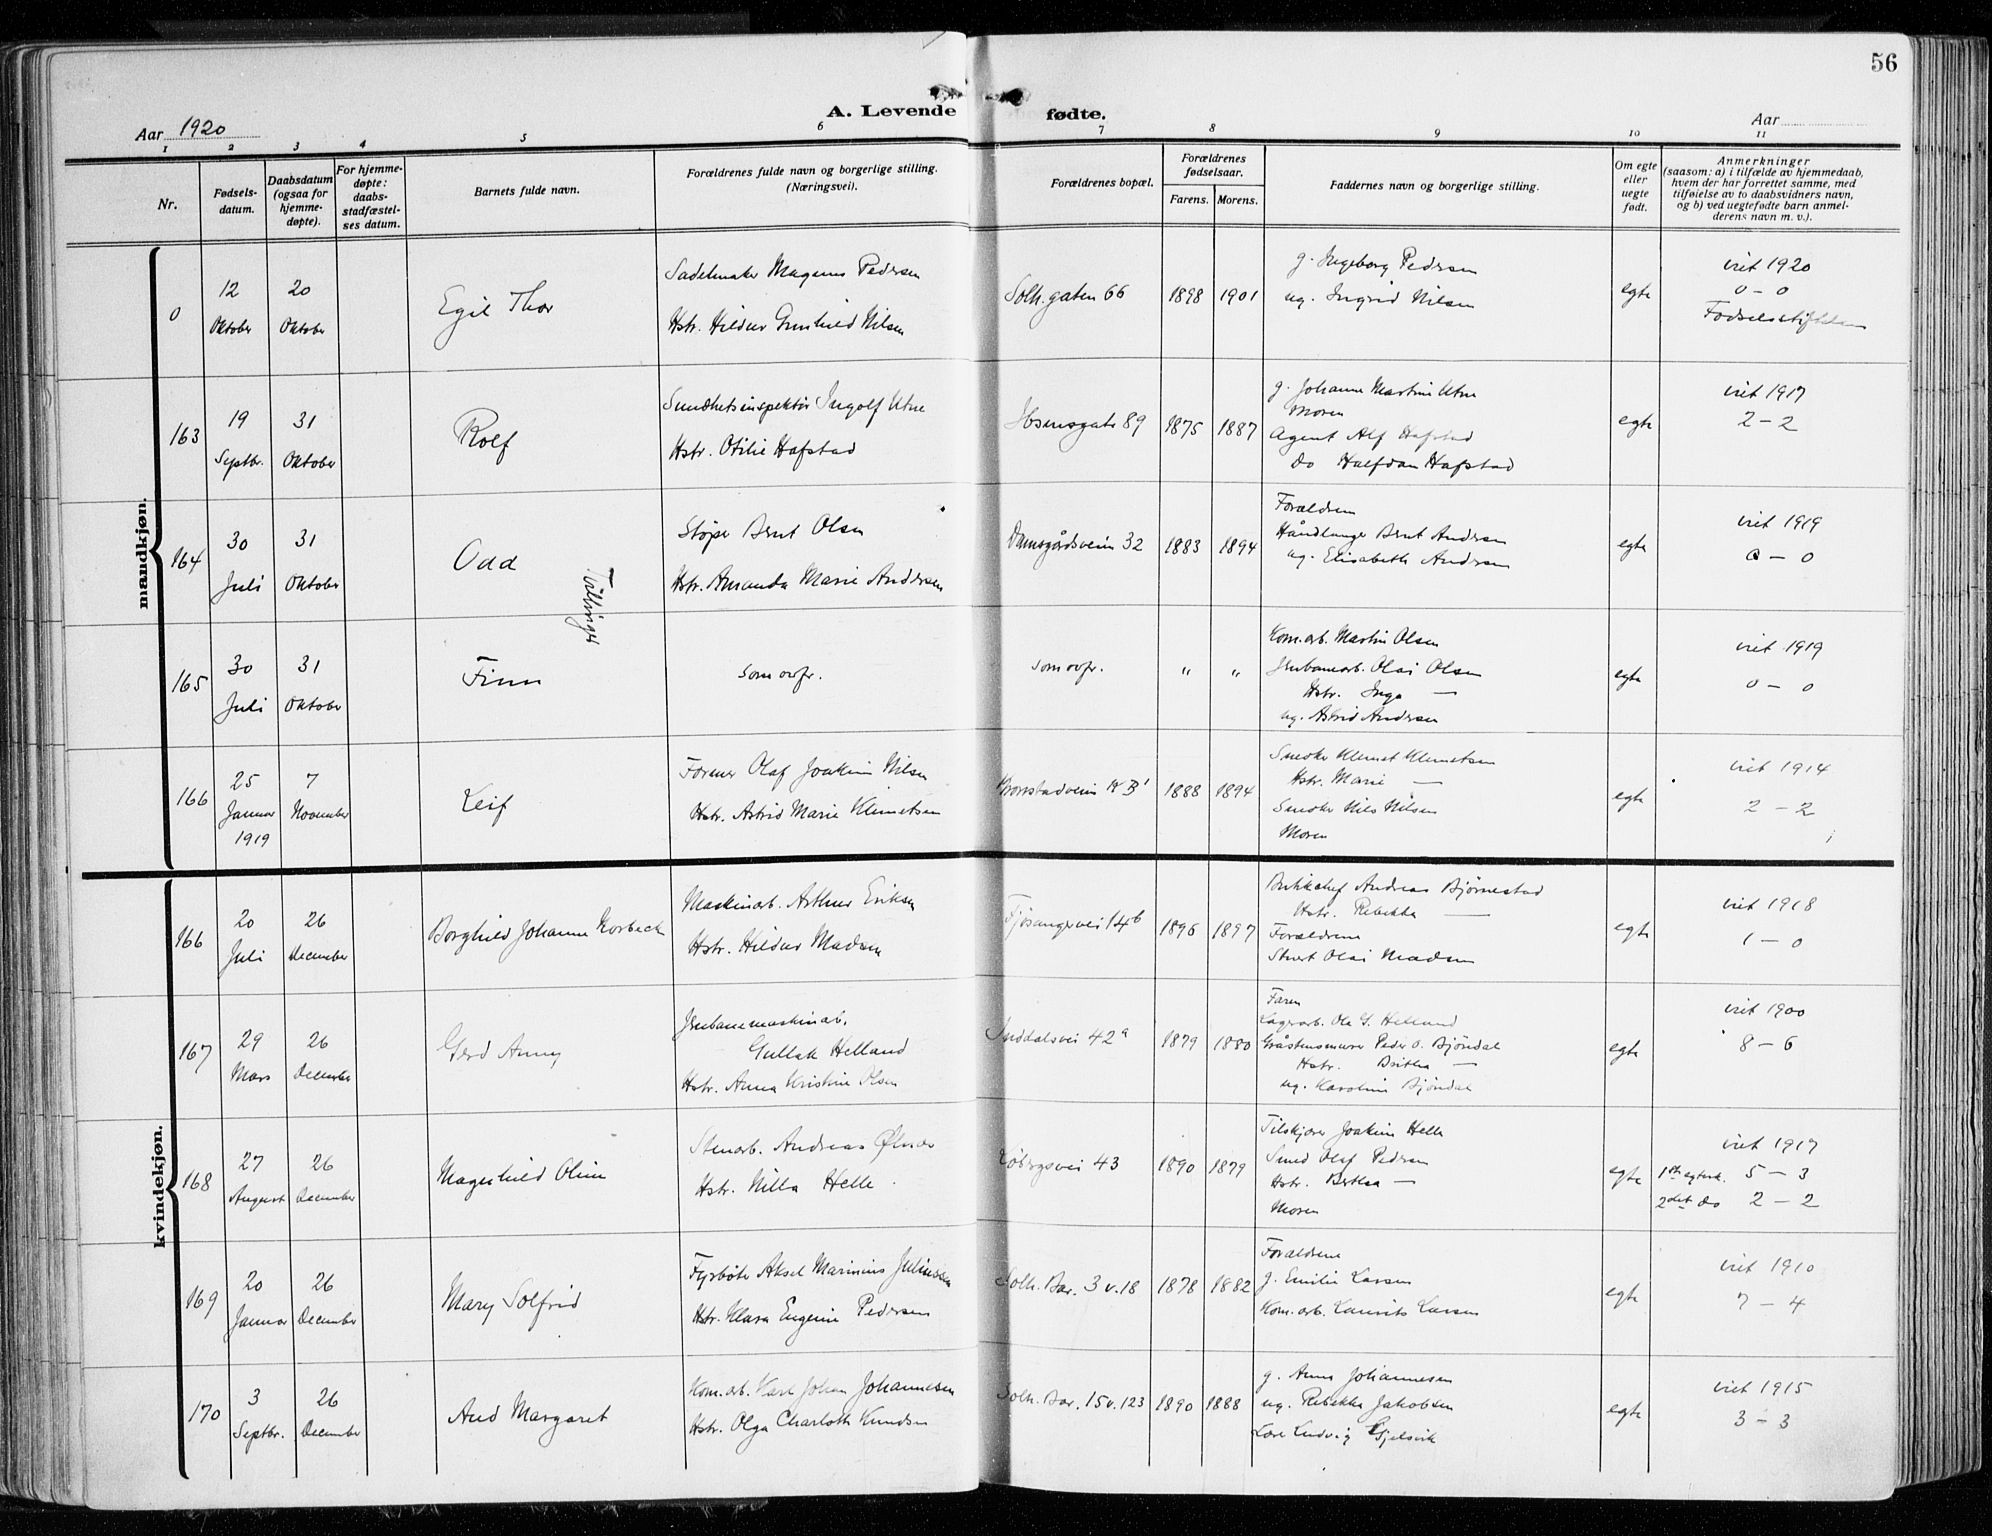 56
A. Levende fødte.
Aar 1920
Aar
1 2 3 4 5 6 7 8 9 10 11
Nr.
Fødsels-
datum.
Daabsdatum
(ogsaa for
hjemme-
døpte).
For hjemme-
døpte:
daabs-
stadfæstel-
ses datum.
Barnets fulde navn.
Forældrenes fulde navn og borgerlige stilling.
(Næringsvei).
Forældrenes bopæl.
Forældrenes
fødselsaar.
Farens. Morens.
Faddernes navn og borgerlige stilling.
Om egte
eller
uegte
født.
Anmerkninger
(saasom: a) i tilfælde av hjemmedaab,
hvem der har forrettet samme, med
tilføielse av to daabsvidners navn,
og b) ved uegtefødte barn anmel-
derens navn m. v.).
mandkjøn.
0
12
Oktober
20
Oktober
Egil Thor
Sadelmaker Magnus Pedersen
Hstr. Hildur Gunhild Nilsen
Solh.gaten 66
1898
1901
g. Ingeborg Pedersen
ug. Ingrid Nilsen
egte
viet 1920
0 – 0
Fødselsstiftelsen
163
19
Septbr.
31
Oktober
Rolf
Sundhetsinspektør Ingolf Utne
Hstr. Otilie Hafstad
Ibsensgate 89
1875
1887
g. Johanne Martine Utne
Moren
Agent Alf Hafstad
do Halfdan Hafstad
egte
viet 1917
2 – 2
164
30
Juli
31
Oktober
Odd
Tvillinger
Støper Bernt Olsen
Hstr. Amanda Marie Andersen
Damsgårdsveien 32
1883
1894
Forældrene
Håndlanger Bernt Andersen
ug. Elisabeth Andersen
egte
viet 1919
0 – 0
165
30
Juli
31
Oktober
Finn
som ovfr.
som ovfr.
"
"
Kom.arb. Martin Olsen
Jernbanearb. Olai Olsen
Hstr. Inga —
ug. Astrid Andersen
egte
viet 1919
0 – 0
166
25
Januar
1919
7
November
Leif
Former Olaf Joakim Nilsen
Hstr. Astrid Marie Klemetsen
Kronstadveien
1888
1894
Snedker Klemet Klemetsen
Hstr. Marie —
Snedker Nils Nilsen
Moren
egte
viet 1914
2 – 2
kvindekjøn.
166
20
Juli
26
December
Borghild Johanne Norbeck
Maskinarb. Arthur Eriksen
Hstr. Hildur Madsen
Fjøsangervei 14b
1896
1897
Butikchef Andreas Bjørnestad
Hstr. Rebekka —
Forældrene
Stuert Olai Madsen
egte
viet 1918
1 – 0
167
29
Mars
26
December
Gerd Anny
Jernbanemaskinarb.
Gullak Helland
Hstr. Anna Kristine Olsen
Inddalsvei 42a
1879
1880
Faren
Lagerarb. Ole G. Helland
Gråstensmurer Peder O. Bjøndal
Hstr. Britha —
ug. Karoline Bjøndal
egte
viet 1900
8 – 6
168
27
August
26
December
Magnhild Oline
Stenarb. Andreas
Hstr. Nilla Helle
Løbergsvei 43
1890
1879
Tilskjærer Joakim Helle
Smed Olaf Pedersen
Hstr. Bertha —
Moren
egte
viet 1917
1ste egtesk. 5 – 3
2det do 2 – 2
169
20
Januar
26
December
Mary Solfrid
Fyrbøter Aksel Marinius Juliussen
Hstr. Klara Eugenie Pedersen
Solh. Bar. 3 v. 18
1878
1882
Forældrene
g. Emilie Larsen
Kom. arb. Laurits Larsen
egte
viet 1910
7 – 4
170
3
Septbr.
26
December
Aud Margaret
Kom. arb. Karl Johan Johannesen
Hstr. Olga Charlotte Knudsen
Solh. Bar. 15 v. 123
1890
1888
g. Anna Johannesen
ug. Rebekka Jakobsen
Lære Ludvig Gjelsvik
egte
viet 1915
3 – 3